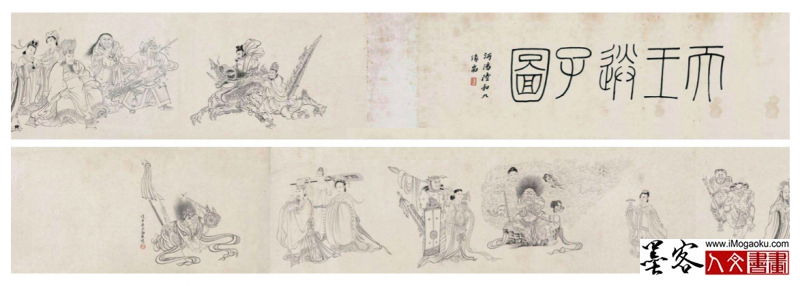 天王送子圖
沔陽陸和九
墨客
www.iMogaoku.com
人文書畫